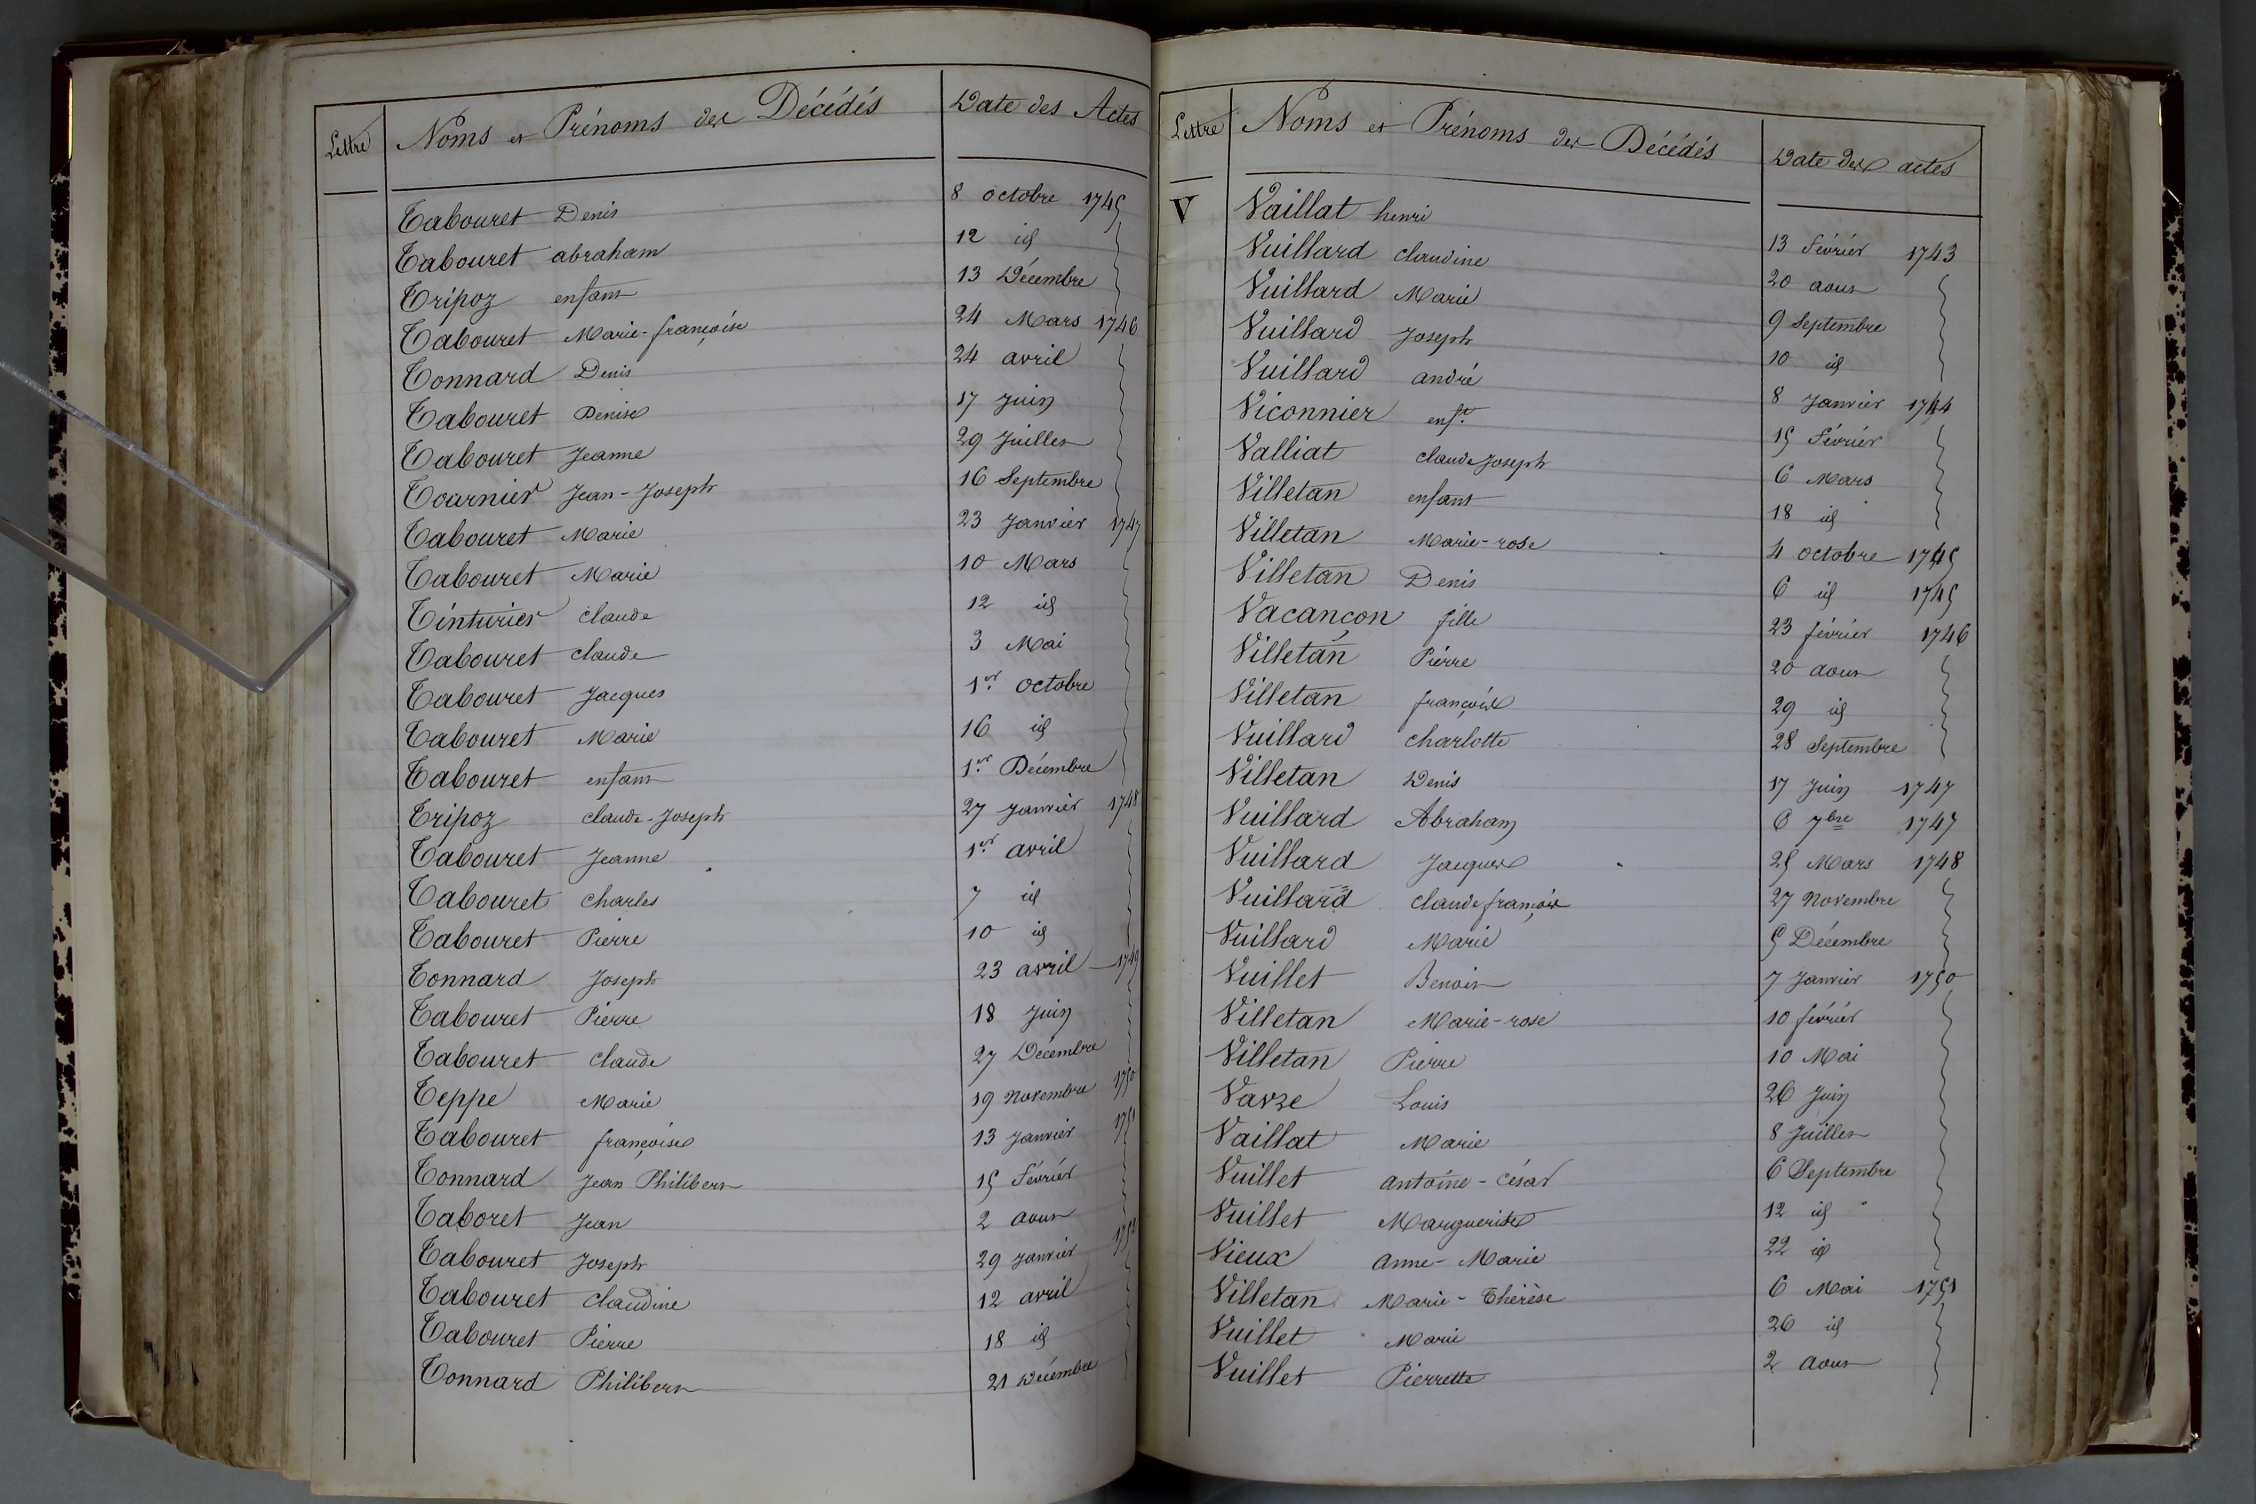 Lettre Noms et Prénoms des Décédés Date des Actes
Tabouret Denis 8 octobre 1745
Tabouret abraham 12 id
Tripoz enfant 13 Décembre
Tabouret Marie-françoise 24 Mars 1746
Tonnard Denis 24 avril
Tabouret Denise 17 Juin
Tabouret Jeanne 29 Juillet
Tournier Jean-Joseph 16 Septembre
Tabouret Marie 23 Janvier 1747
Tabouret Marie 10 Mars
Tinturier claude 12 id
Tabouret claude 3 Mai
Tabouret Jacques 1er octobre
Tabouret Marie 16 id
Tabouret enfant 1er Décembre
Tripoz claude-Joseph 27 Janvier 1748
Tabouret Jeanne 1er avril
Tabouret charles 7 id
Tabouret Pierre 10 id
Tonnard Joseph 23 avril 1749
Tabouret Pierre 18 Juin
Tabouret claude 27 Décembre
Teppe Marie 19 Novembre 1750
Tabouret françoise 13 Janvier 1751
Tonnard Jean Philibert 15 Février
Taboret Jean 2 aout
Tabouret Joseph 29 Janvier
Tabouret claudine 12 avril
Tabouret Pierre 18 id
Tonnard Philibert 21 Décembre
Lettre Noms et Prénoms des Décédés Date des actes
V Vaillat henri 13 Février 1743
Vuillard claudine 20 aout
Vuillard Marie 9 Septembre
Vuillard Joseph 10 id
Vuillard andré 8 Janvier 1744
Viconnier enft. 15 Février
Valliat claude Joseph 6 Mars
Villetan enfant 18 id
Villetan Marie-rose 4 octobre 1745
Villetan Denis 6 id 1745
Vacançon fille 23 février 1746
Villetan Pierre 20 aout
Villetan françois 29 id
Vuillard charlotte 28 Septembre
Villetan Denis 17 Juin 1747
Vuillard Abraham 6 7bre 1747
Vuillard Jacques 25 Mars 1748
Vuillard claude françois 27 Novembre
Vuillard Marie 5 Décembre
Vuillet Benoit 7 Janvier 1750
Villetan Marie-rose 10 février
Villetan Pierre 10 Mai
Varze Louis 26 Juin
Vaillat Marie 8 Juillet
Vuillet antoine-césar 6 Septembre
Vuillet Marguerite 12 id
Vieux anne-Marie 22 id
Villetan Marie-Thérèse 6 Mai 1751
Vuillet Marie 26 id
Vuillet Pierrette 2 aout